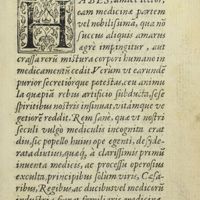 HABES, amice lector,
eam medicinæ partem
vel nobilißimã, qua nõ
succus aliquis amarus
ægrè impingitur, aut
crassa rerũ mistura corpori humano in
medicamentũ cedit. Verùm ut earundẽ
purior secretiorque potestas, ceu anima
la quapiã rebus artificio subducta, sese
spiritibus nostris insinuat, vitámque ve
getiorẽ reddit. Rem sanè, qua vt nostri
seculi vulgò mediculis incognita cran
did est, sic popello huim ope egenti, de syde
rata diutius, quàm à clarißimis primũ
inuenta medicis, ac processu operosius
exculta, principibus solùm viris, Cæsa
ribus, Regibus, ac ducibus vel medicorũ